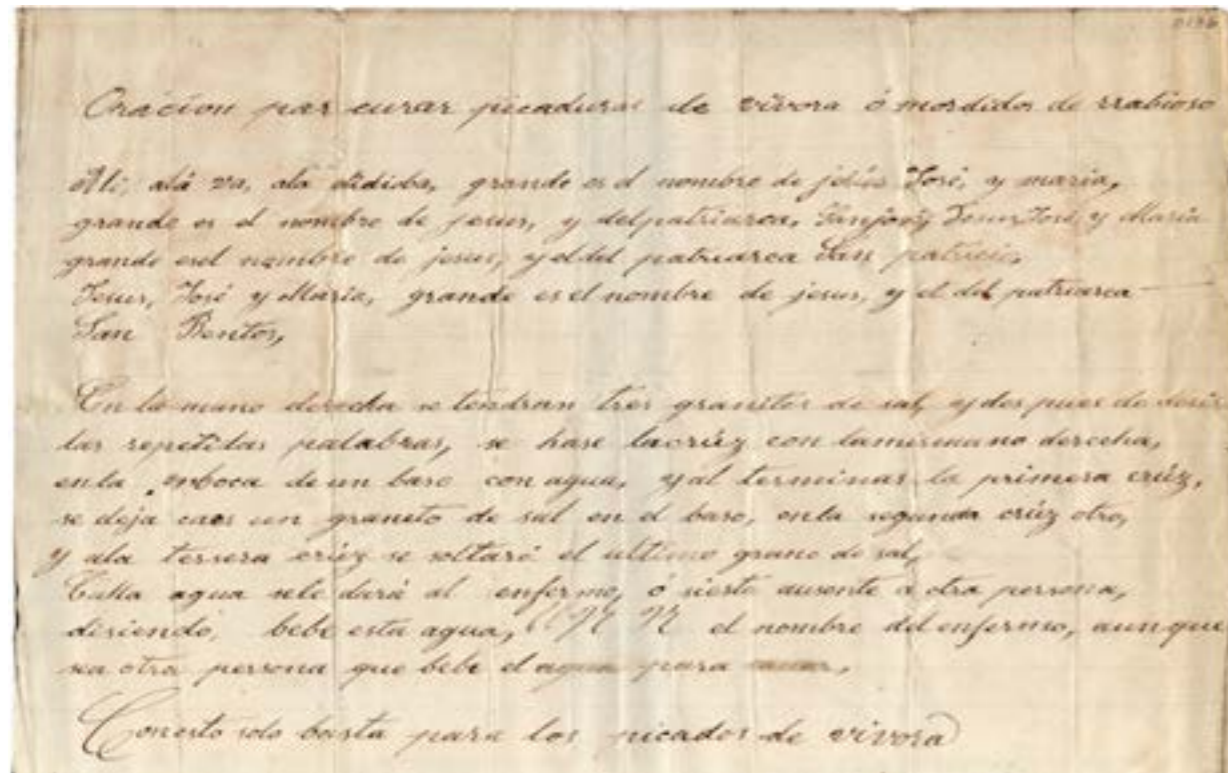 0196
Oracion par curar picaduras de vivora ó mordidos de rrabioso
Ali, alá va, alá didiba, grande es el nombre de jesús José, y maria,
grande es el nombre de jesus, y del patriarca, San josé, Jesus José y Maria
grande es el nombre de jesus, y el del patriarca San patricio,
Jesus, José y Maria, grande es el nombre de jesus, y el del patriarca
San Bentos,
En la mano derecha se tendran tres granitos de sal, y des pues de desir
las repetidas palabras, se hase la crúz con la misma mano derecha,
en la enboca de un baso con agua, y al terminar la primera crúz,
se deja caer un graneto de sal en el baso, en la segunda crúz otro,
y ala tersera crúz se soltará el ultimo grano de sal,
agua se le dará al enfermo, ó si está ausente a otra persona,
disiendo, bebe esta agua, N N el nombre del enfermo, aunque
sea otra persona que bebe el agua para
Con esto solo basta para los picados de vivora